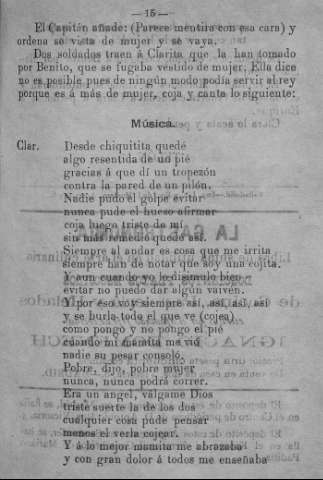 — 15 —
El Capitán añade: (Parece mentira con esa cara) y
ordena se vista de mujer y se vaya.
Dos soldados traen á Clarita que la han tomado
por Benito, que se fugaba vestido de mujer, Ella dice
no es posible pues de ningún modo podía servir al rey
porque es á más de mujer, coja y canta lo siguiente:
Música.
Clar. Desde chiquitita quedé
algo resentida de un pié
gracias á que dí un tropezón
contra la pared de un pilón.
Nadie pudo el golpe evitar
nunca pude el hueso afirmar
coja luego triste de mi
sin más remedio quedé así.
Siempre al andar es cosa que me irrita
siempre han de notar que soy una cojita.
Y aun cuando yo lo disimulo bien
evitar no puedo dar algún vaiven.
Y por eso voy siempre así, así, así, así
y se burla todo el que ve (cojea)
como pongo y no pongo el pié
cuando mi mamita me vió
nadie su pesar consoló.
Pobre, dijo, pobre mujer
nunca, nunca podrá correr.
Era un angel, válgame Dios
triste suerte la de los dos
cualquier cosa pude pensar
menos el verla cojear.
Y á lo mejor mamita me abrazaba
y con gran dolor á todos me enseñaba